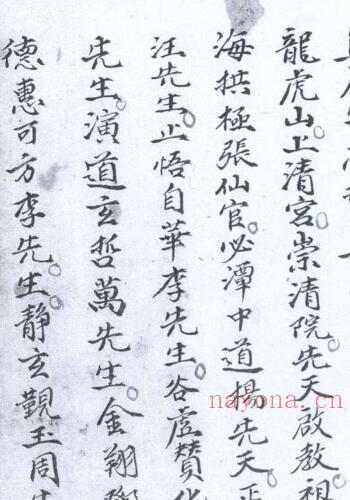 龍虎山上清宮崇清院先天啟教祖
海拱極張仙官必潭中道揚先天正
汪先生止悟自華李先生谷虛贊化
先生演道玄哲萬先生金翔
德惠可方李先生靜玄觀玉周
nayona.cn